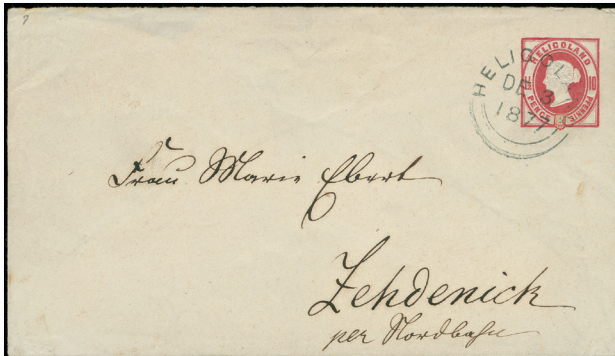 HELIGOLAND
10
PENCE
PFENNIG
HELIGOL
DE 3
1877
Frau Marie Ebert
Zehdenick
per Nordbahn